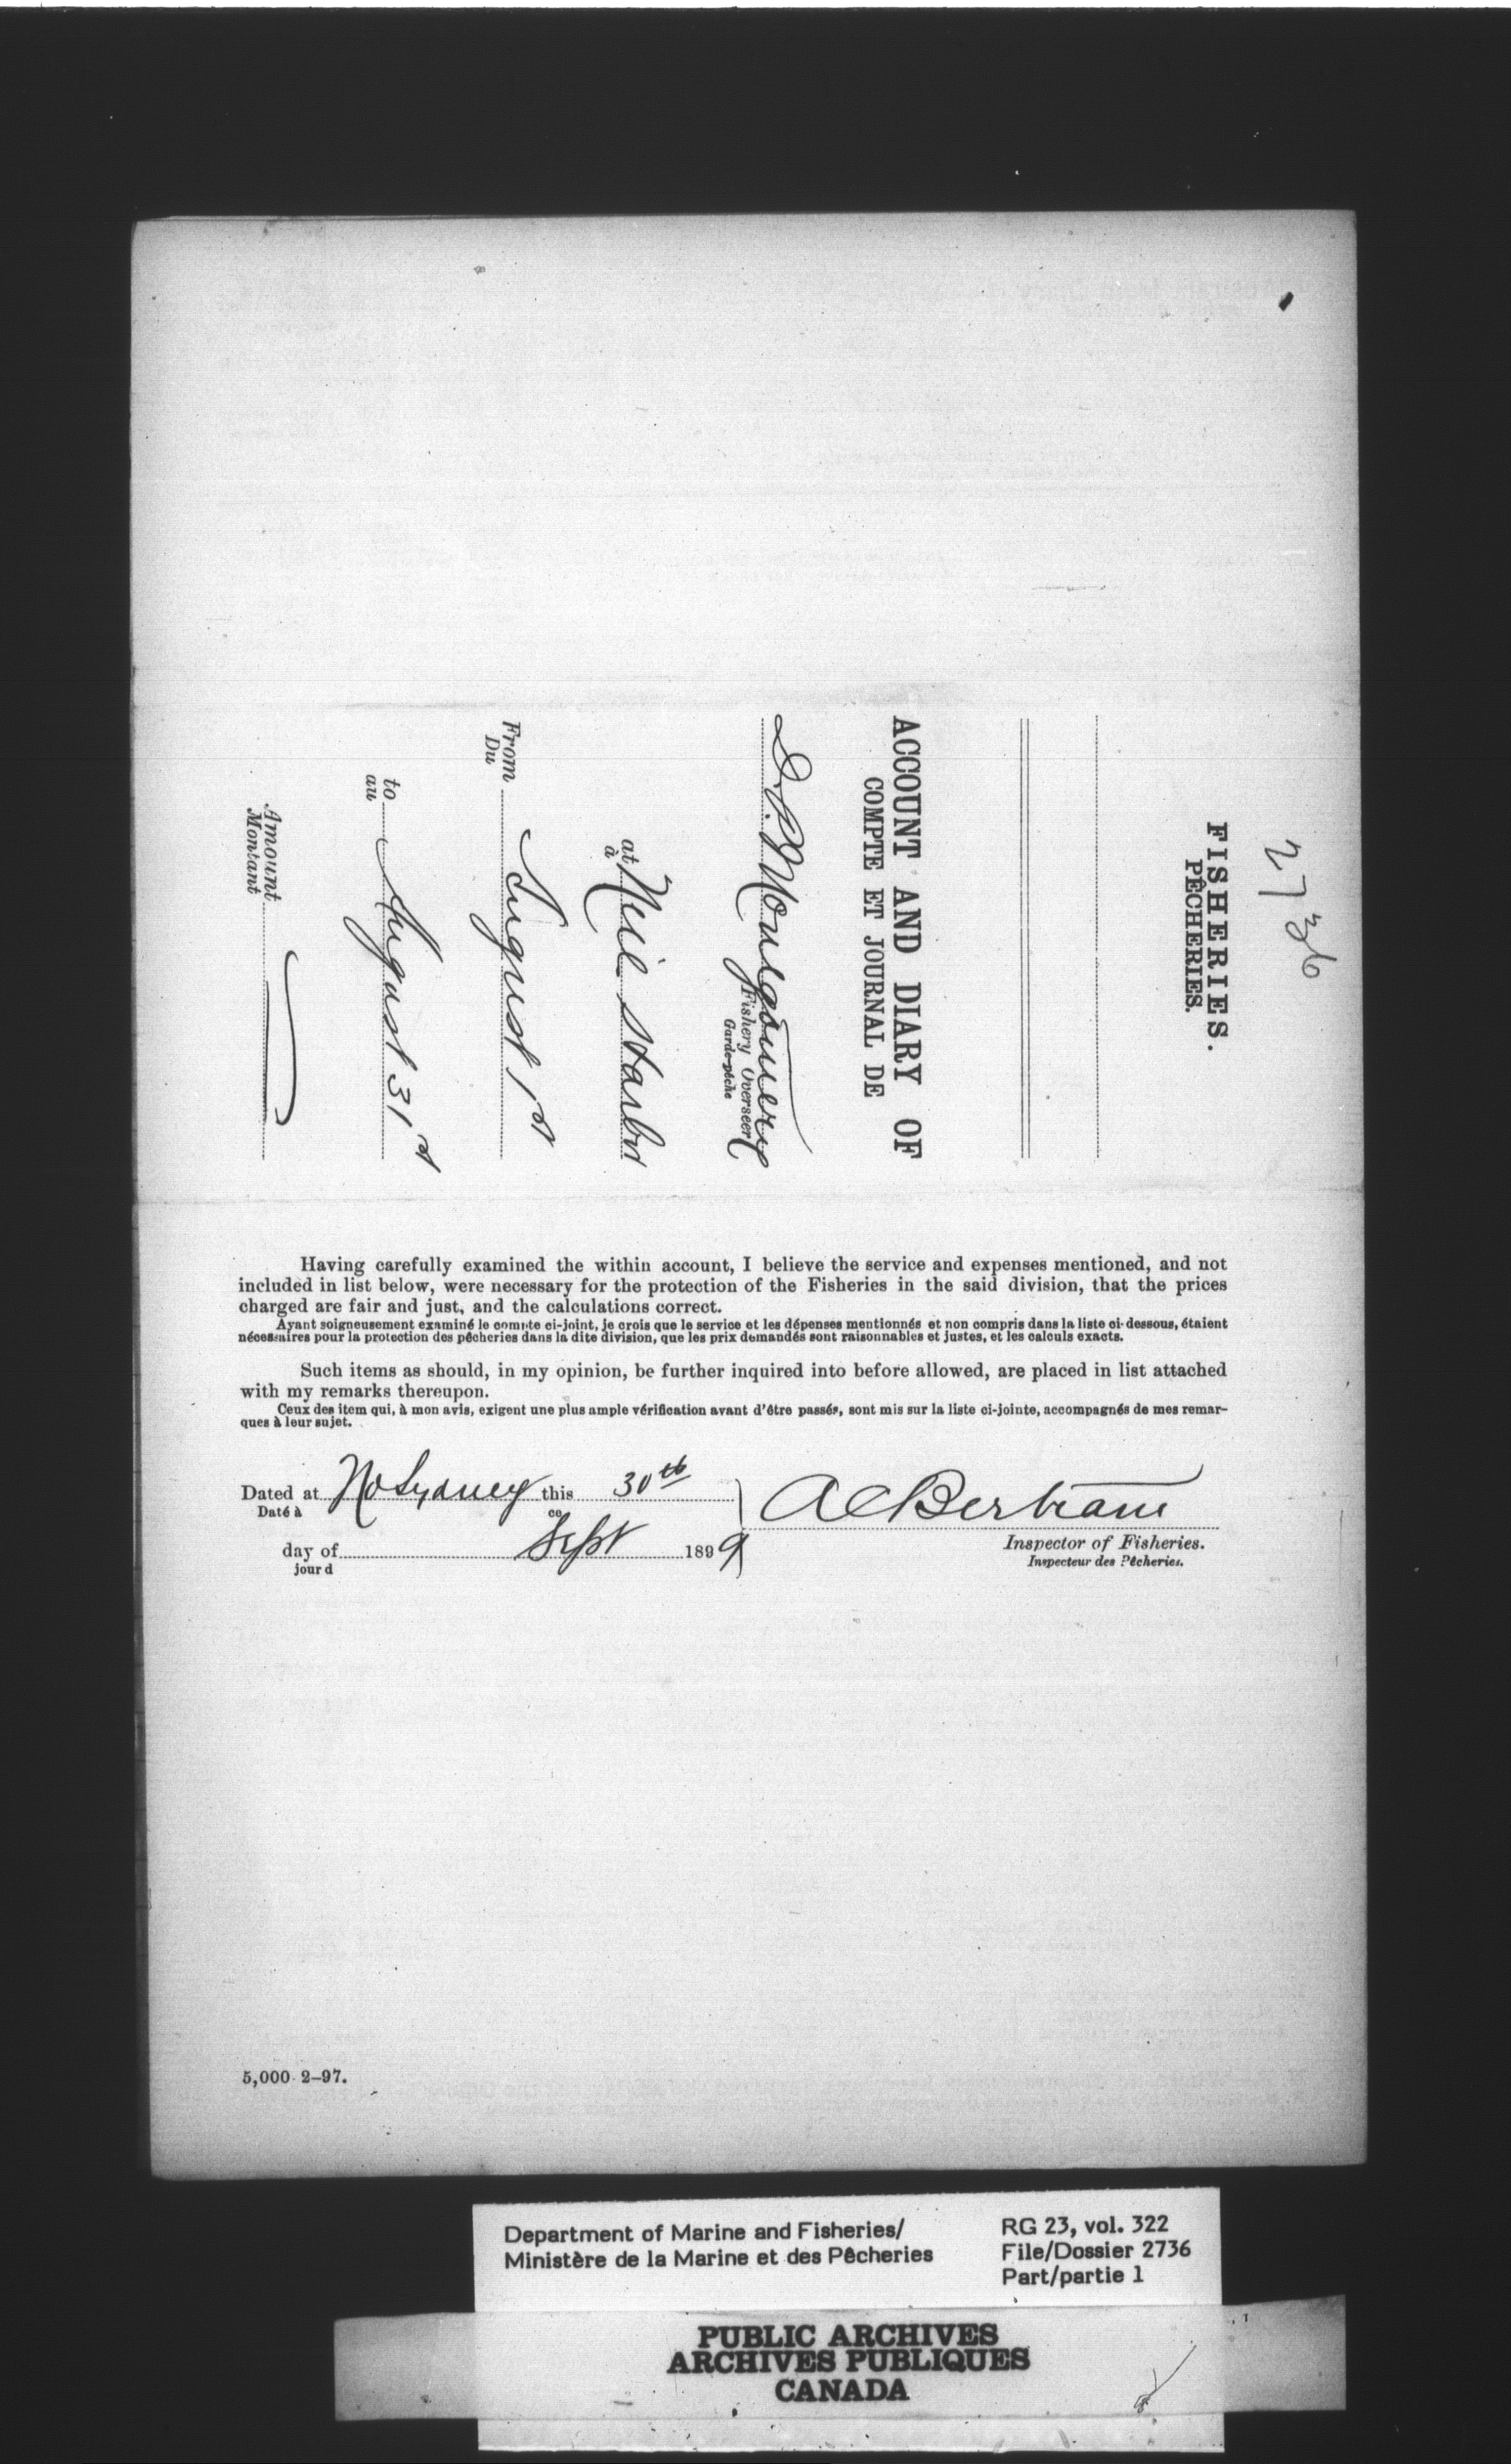 2736
FISHERIES.
PÊCHERIES.
ACCOUNT AND DIARY OF
COMPTE ET JOURNAL DE
D. P. Montgomery
Fishery Overseer
Garde-pêche
at Neil
à
From August 1st
Du
to August 31st
au
Amount
Montant
Having carefully examined the within account, I believe the service and expenses mentioned, and not
included in list below, were necessary for the protection of the Fisheries in the said division, that the prices
charged are fair and just, and the calculations correct.
Ayant soigneusement examiné le compte ci-joint, je crois que le service et les dépenses mentionnés et non compris dans la liste ci-dessous, étaient
nécessaires pour la protection des pêcheries dans la dite division, que les prix demandés sont raisonnables et justes, et les calculs exacts.
Such items as should, in my opinion, be further inquired into before allowed, are placed in list attached
with my remarks thereupon.
Ceux des item qui, à mon avis, exigent une plus ample vérification avant d'être passés, sont mis sur la liste ci-jointe, accompagnés de mes remar-
ques à leur sujet.
Dated at No Sydney this 30th
Daté à ce
A C Bertram
day of Sept 1899
jour d
Inspector of Fisheries.
Inspecteur des Pêcheries.
5,000 2-97.
Department of Marine and Fisheries/
Ministère de la Marine et des Pêcheries
RG 23, vol. 322
File/Dossier 2736
Part/partie 1
PUBLIC ARCHIVES
ARCHIVES PUBLIQUES
CANADA